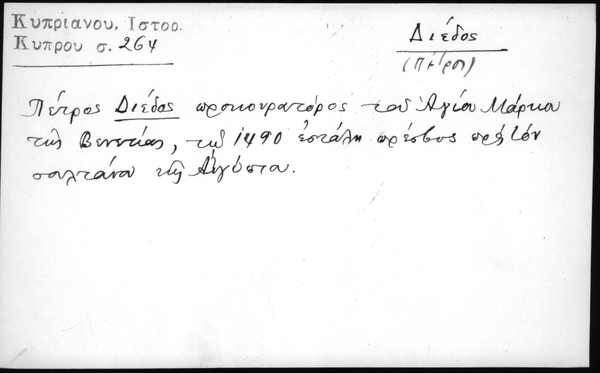 Κυπριανου, Ιστορ.
Κυπρου σ. 264
Διέδος
(Πέτρος)
Πέτρος Διέδος προκουρατόρος τοῦ Ἁγίου Μάρκου
τῆς Βενετίας, τῷ 1490 ἐστάλη πρέσβυς πρὸς τὸν
σουλτάνο τῆς Αἰγύπτου.